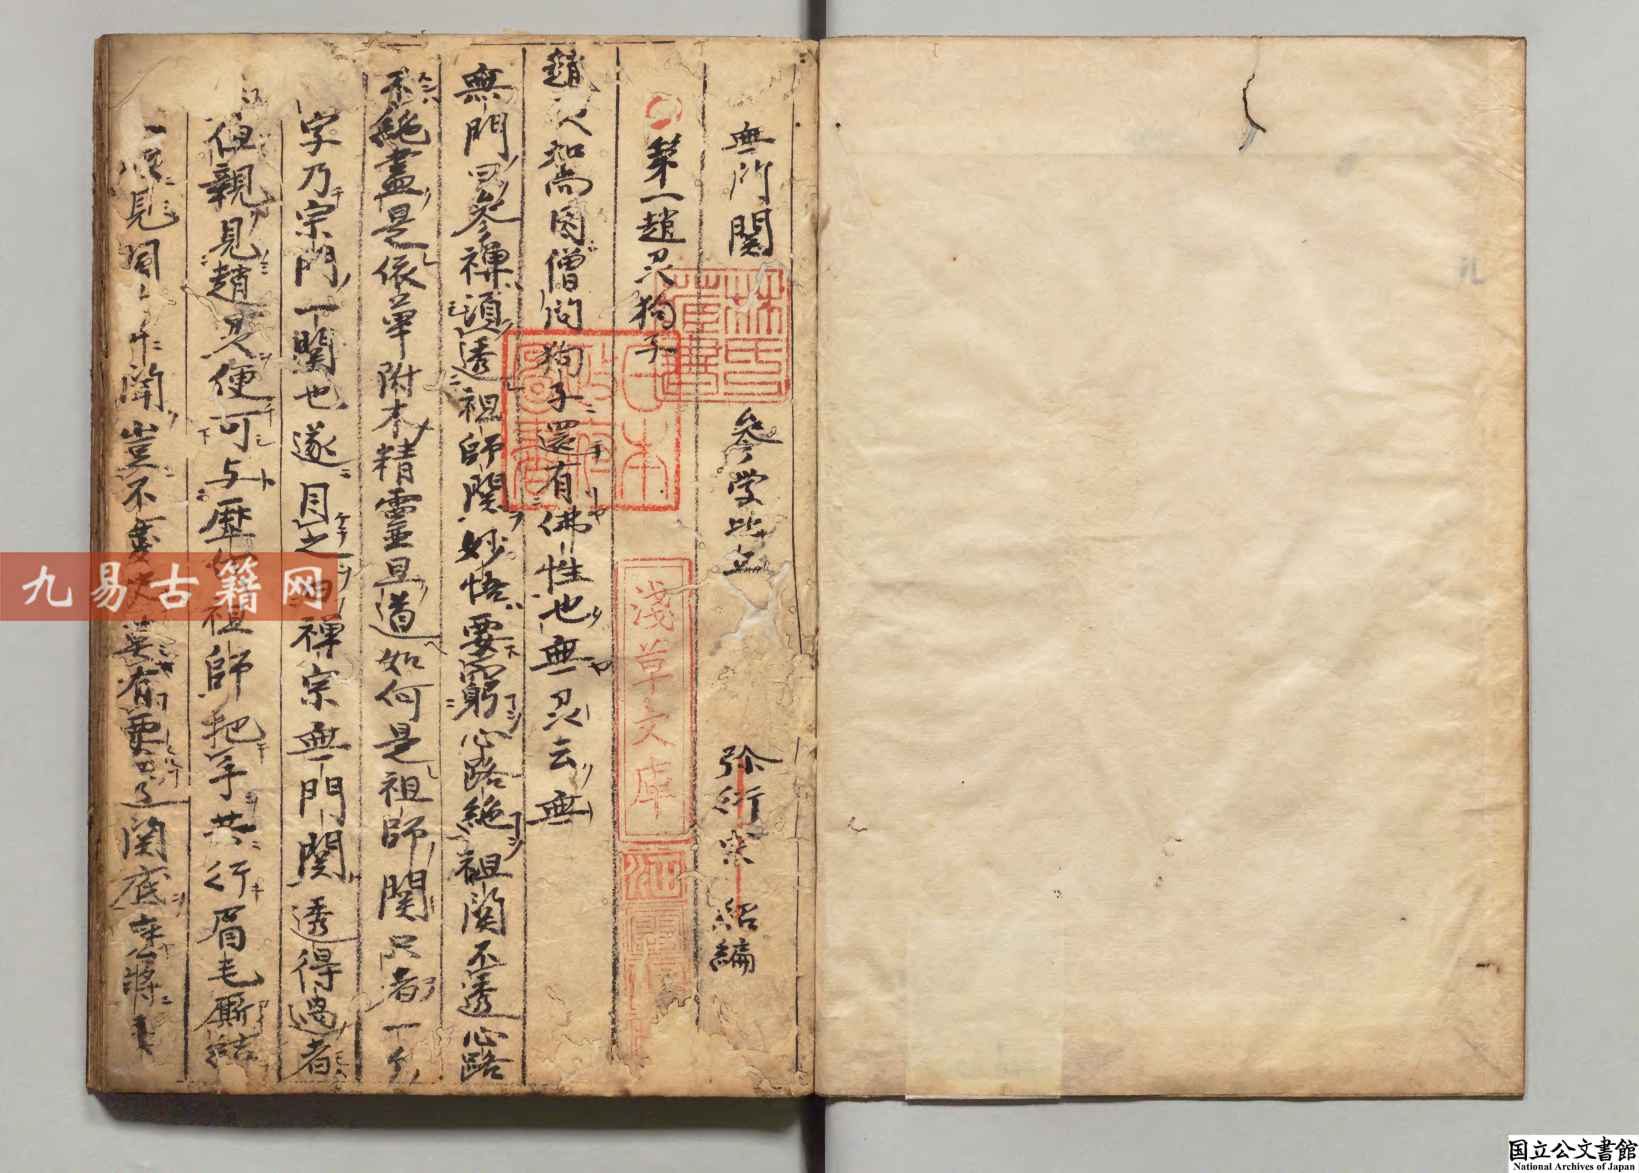 無門関 参学比丘 弥衍宗紹編
第一趙州狗子
趙州和尚因僧問狗子還有佛性也無州云無
無門曰参禅須透祖師関妙悟要窮心路絶祖関不透心路
不絶盡是依草附木精霊且道如何是祖師関只者一个
字乃宗門一関也遂目之曰禅宗無門関透得過者
但親見趙州便可与歴代祖師把手共行眉毛厮結
同一眼見同一耳聞豈不慶快莫有要透関底麼将
林氏蔵書
日本政府図書
浅草文庫
九易古籍网
国立公文書館
National Archives of Japan